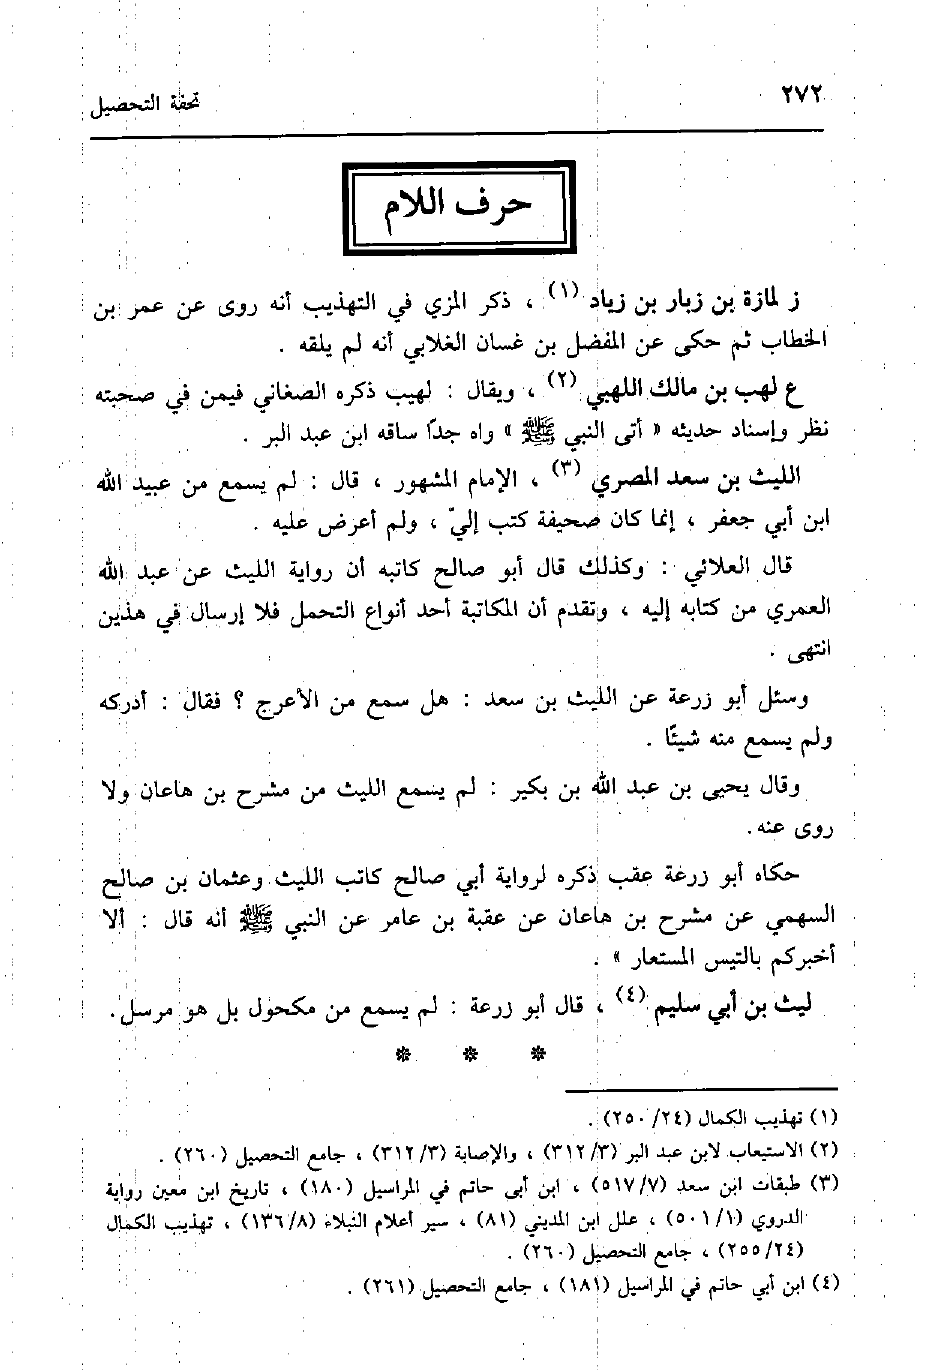 ٢٧٢
تحفة التحصيل
حرف اللام
ز لمازة بن زبار بن زياد (١) ، ذكر المزي في التهذيب أنه روى عن عمر بن
الخطاب ثم حكى عن المفضل بن غسان الغلابي أنه لم يلقه .
ع لهب بن مالك اللهبي (٢) ، ويقال : لهيب ذكره الصغاني فيمن في صحبته
نظر وإسناد حديثه « أتى النبي ﷺ » واه جدًا ساقه ابن عبد البر .
الليث بن سعد المصري (٣) ، الإمام المشهور ، قال : لم يسمع من عبيد الله
ابن أبي جعفر ، إنما كان صحيفة كتب إليّ ، ولم أعرض عليه .
قال العلائي : وكذلك قال أبو صالح كاتبه أن رواية الليث عن عبد الله
العمري من كتابه إليه ، وتقدم أن المكاتبة أحد أنواع التحمل فلا إرسال في هذين
انتهى .
وسئل أبو زرعة عن الليث بن سعد : هل سمع من الأعرج ؟ فقال : أدركه
ولم يسمع منه شيئًا .
وقال يحيى بن عبد الله بن بكير : لم يسمع الليث من مشرح بن هاعان ولا
روى عنه.
حكاه أبو زرعة عقب ذكره لرواية أبي صالح كاتب الليث وعثمان بن صالح
السهمي عن مشرح بن هاعان عن عقبة بن عامر عن النبي ﷺ أنه قال : ألا
أخبركم بالتيس المستعار » .
ليث بن أبي سليم (٤) ، قال أبو زرعة : لم يسمع من مكحول بل هو مرسل.
* * *
(١) تهذيب الكمال (٢٤/ ٢٥٠) .
(٢) الاستيعاب لابن عبد البر (٣/ ٣١٢) ، والإصابة (٣/ ٣١٢) ، جامع التحصيل (٢٦٠) .
(٣) طبقات ابن سعد (٧/ ٥١٧) ، ابن أبى حاتم في المراسيل (١٨٠) ، تاريخ ابن معين رواية
الدروي (١/ ٥٠١) ، علل ابن المديني (٨١) ، سير أعلام النبلاء (٨/ ١٣٦) ، تهذيب الكمال
(٢٤/ ٢٥٥) ، جامع التحصيل (٢٦٠) .
(٤) ابن أبي حاتم في المراسيل (١٨١) ، جامع التحصيل (٢٦١) .